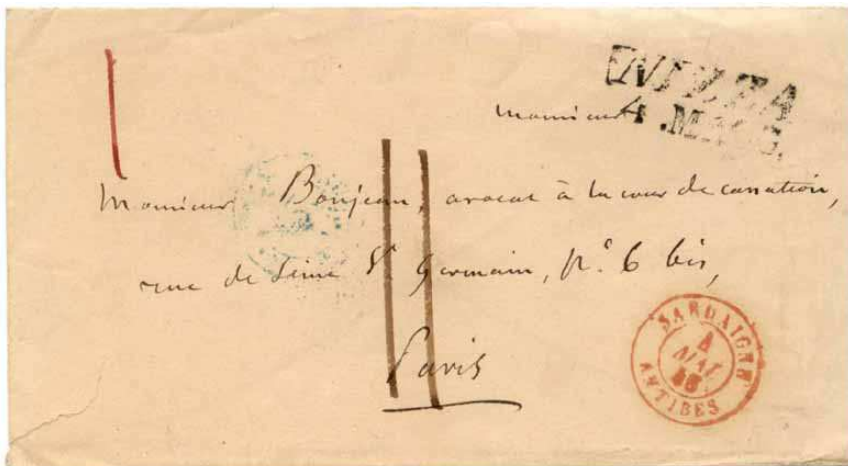 NIZZA
4 MAG.
monsieur
Monsieur Bonjean, avocat à la cour de cassation,
rue de Seine St Germain, No 6 bis,
Paris
SARDAIGNE
4
MAI
ANTIBES